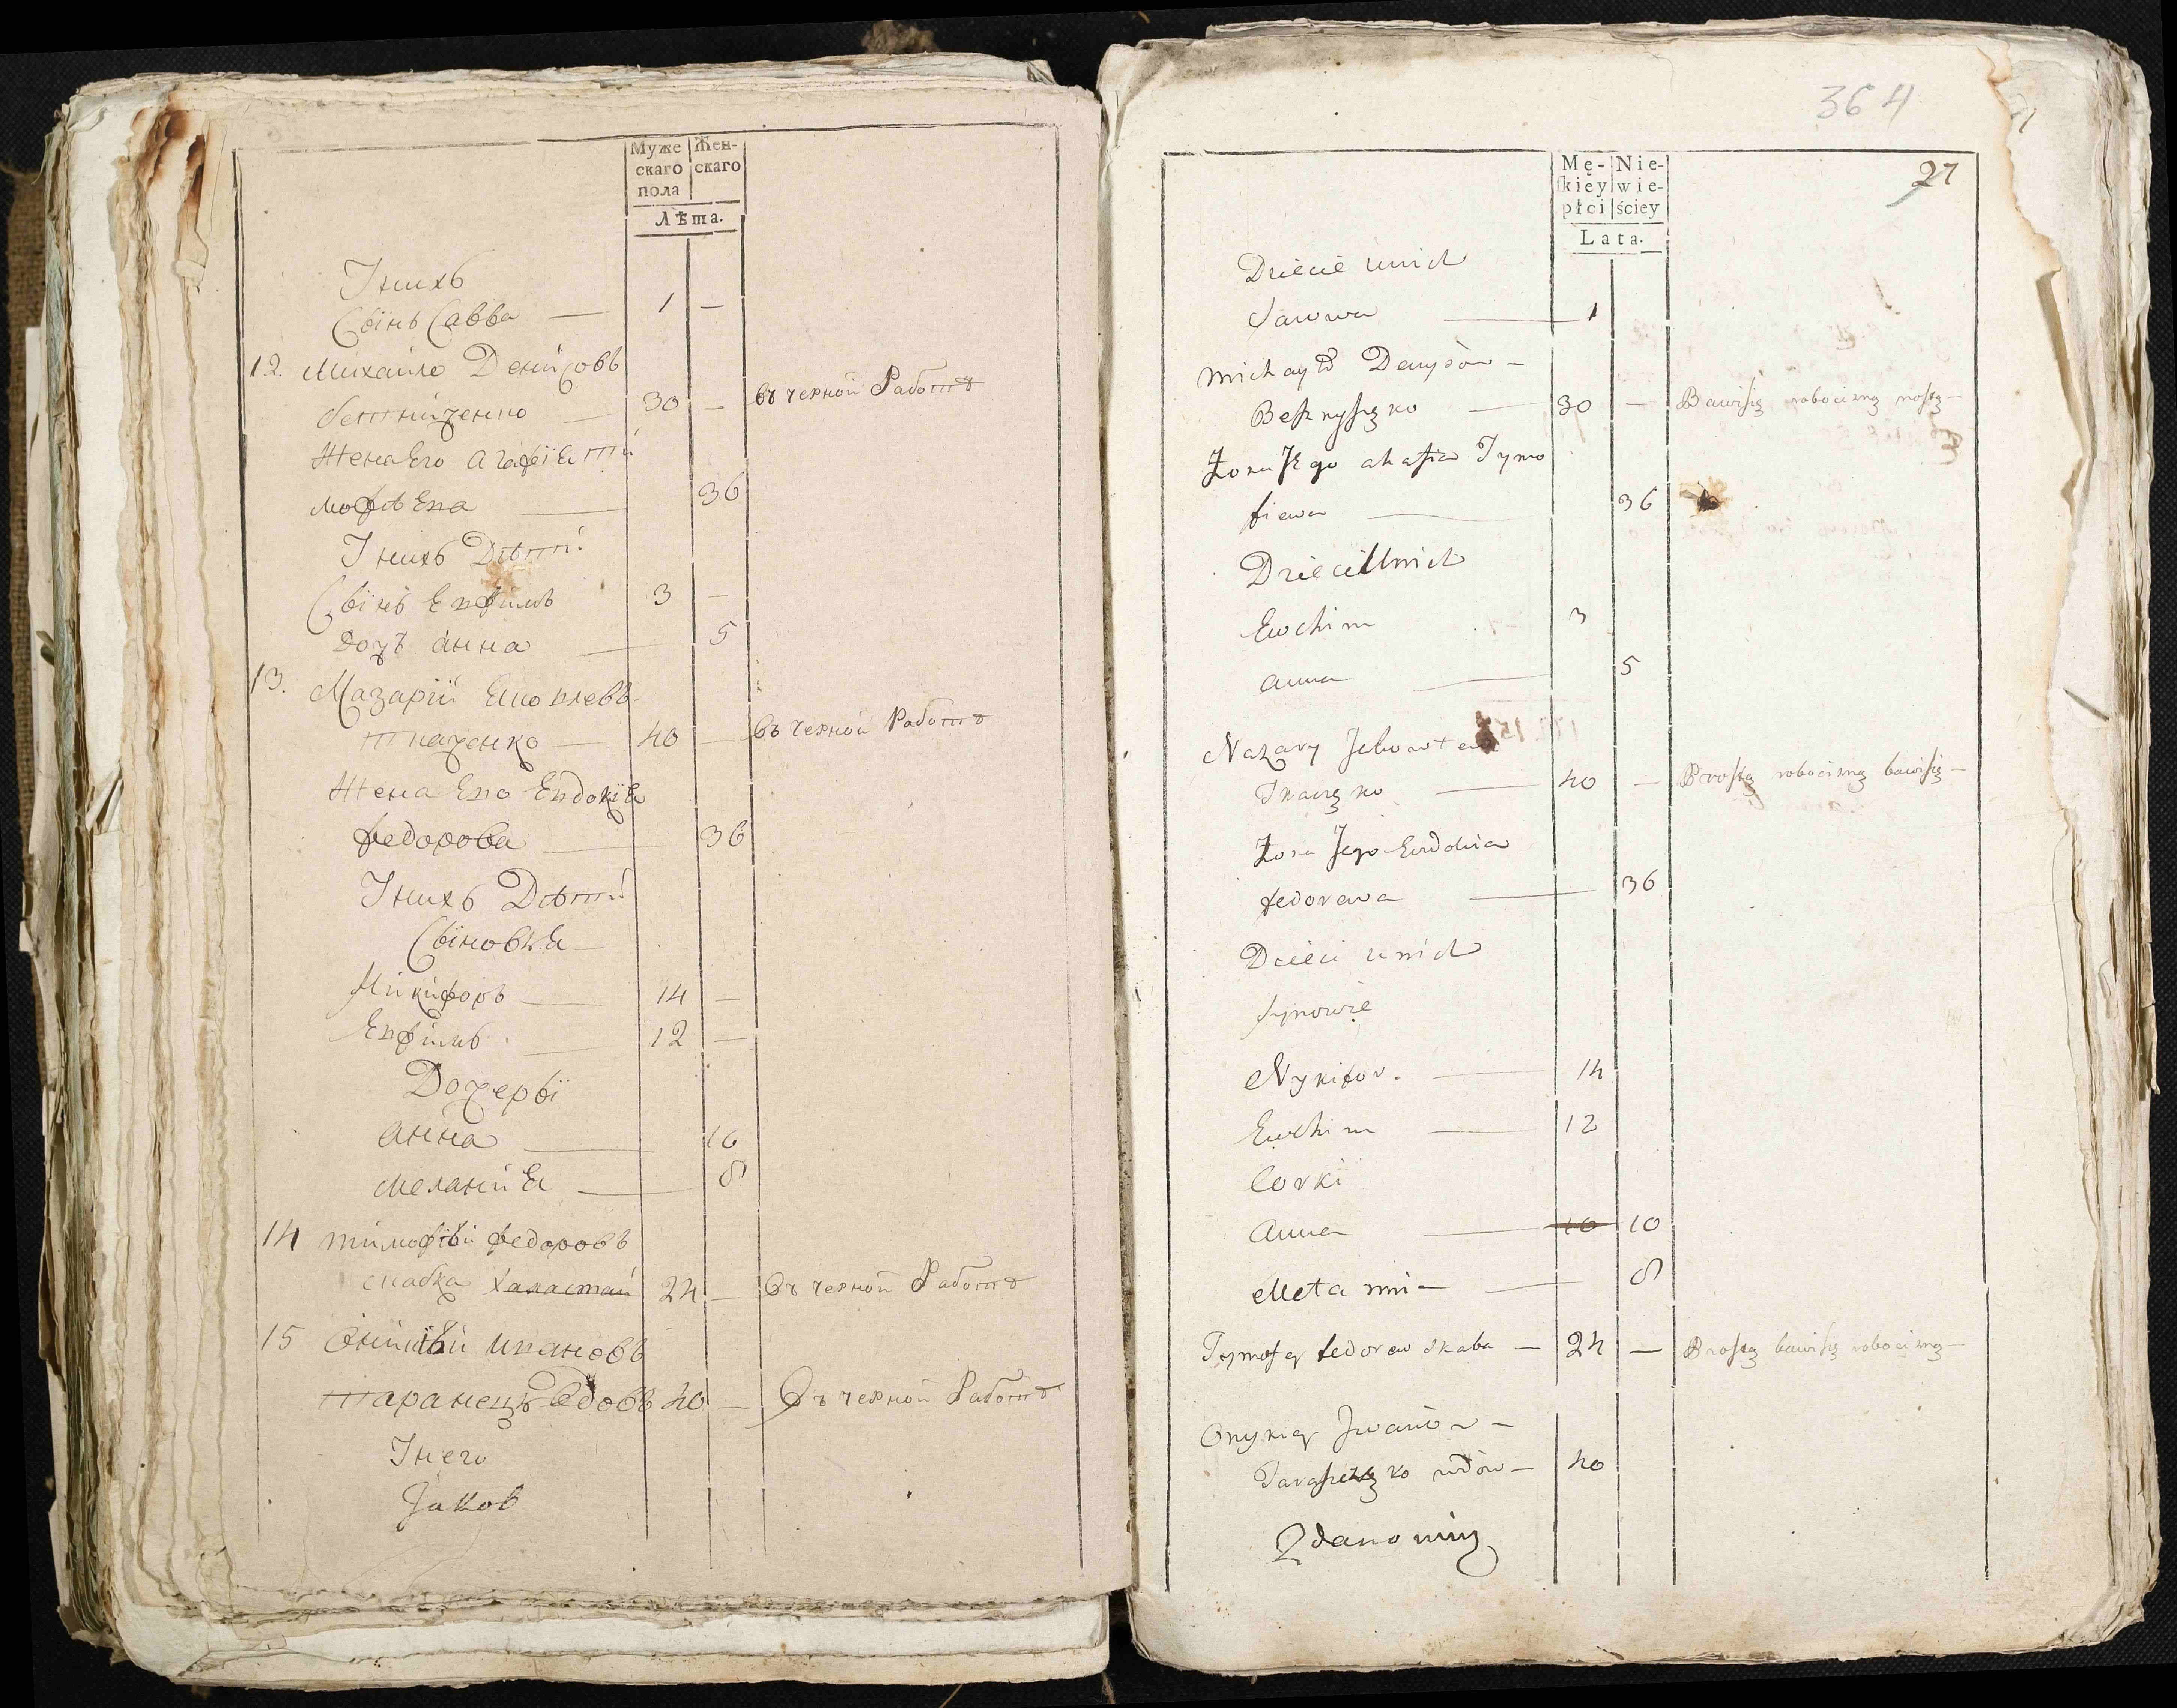 Муже
скаго
пола
Жен-
скаго
Лѣта.
У нихъ
Сынъ Савва — 1 —
12. Михайло Денисовъ
30 — въ черной Работѣ
Жена Его Агафiя Ти
мофѣева — 36
У нихъ Дѣти
Сынъ Евфимъ 3 —
Дочь Анна — 5
13. Назарiй
Ткаченко — 40 — въ черной Работѣ
Жена Ево Евдокiя
Федорова — 36
У нихъ Дѣти
Сыновья
Никифоръ — 14 —
Евфимъ — 12 —
Дочеры
Анна — 10
Меланiя — 8
14 Тимофѣй Федоровъ
скабка Халастай 24 — Въ черной Работѣ
15 Оникѣй Ивановъ
Таранецъ вдовъ 40 — Въ черной Работѣ
У него
Jakob
364
27
Mę-
skiey
płci
Nie-
wie-
ściey
Lata.
Dziecie u nich
Sawwa — 1
Michayło Denysów —
30 — Bawi się robocizną prostą —
Żona Jego Ahafia Tymo
fiewa — 36
Dzieci U nich
Ewchim 3
Anna — 5
Nazary
Tkaczęko — 40 — Prostą robocizną bawi się —
Żona Jego Ewdokia
fedorowa — 36
Dzieci u nich
synowie
Nykifor. — 14
Ewchim — 12
Corki
Anna — 10 10
Melania — 8
Tymofey fedorow Skabka — 24 — Prostą bawi się robocizną —
Onykiey Iwanow —
wdow — 40
Zdanowicz